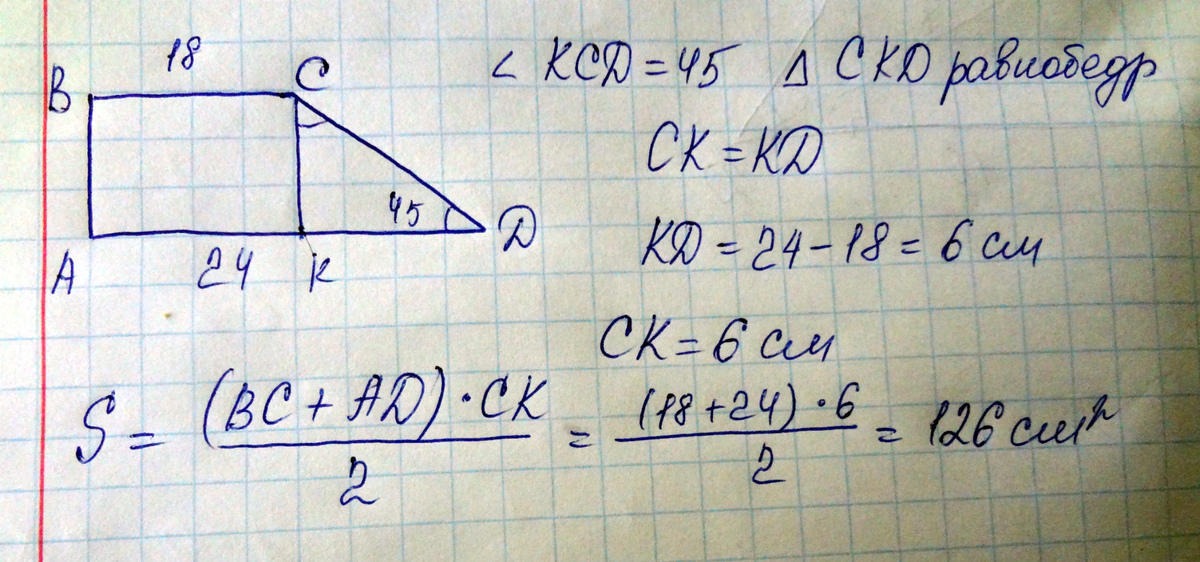 18
B C
45
A 24 K D
< KCD = 45 Δ CKD равнобедр
CK = KD
KD = 24 - 18 = 6 см
CK = 6 см
S = (BC + AD) · CK / 2 = (18 + 24) · 6 / 2 = 126 см²